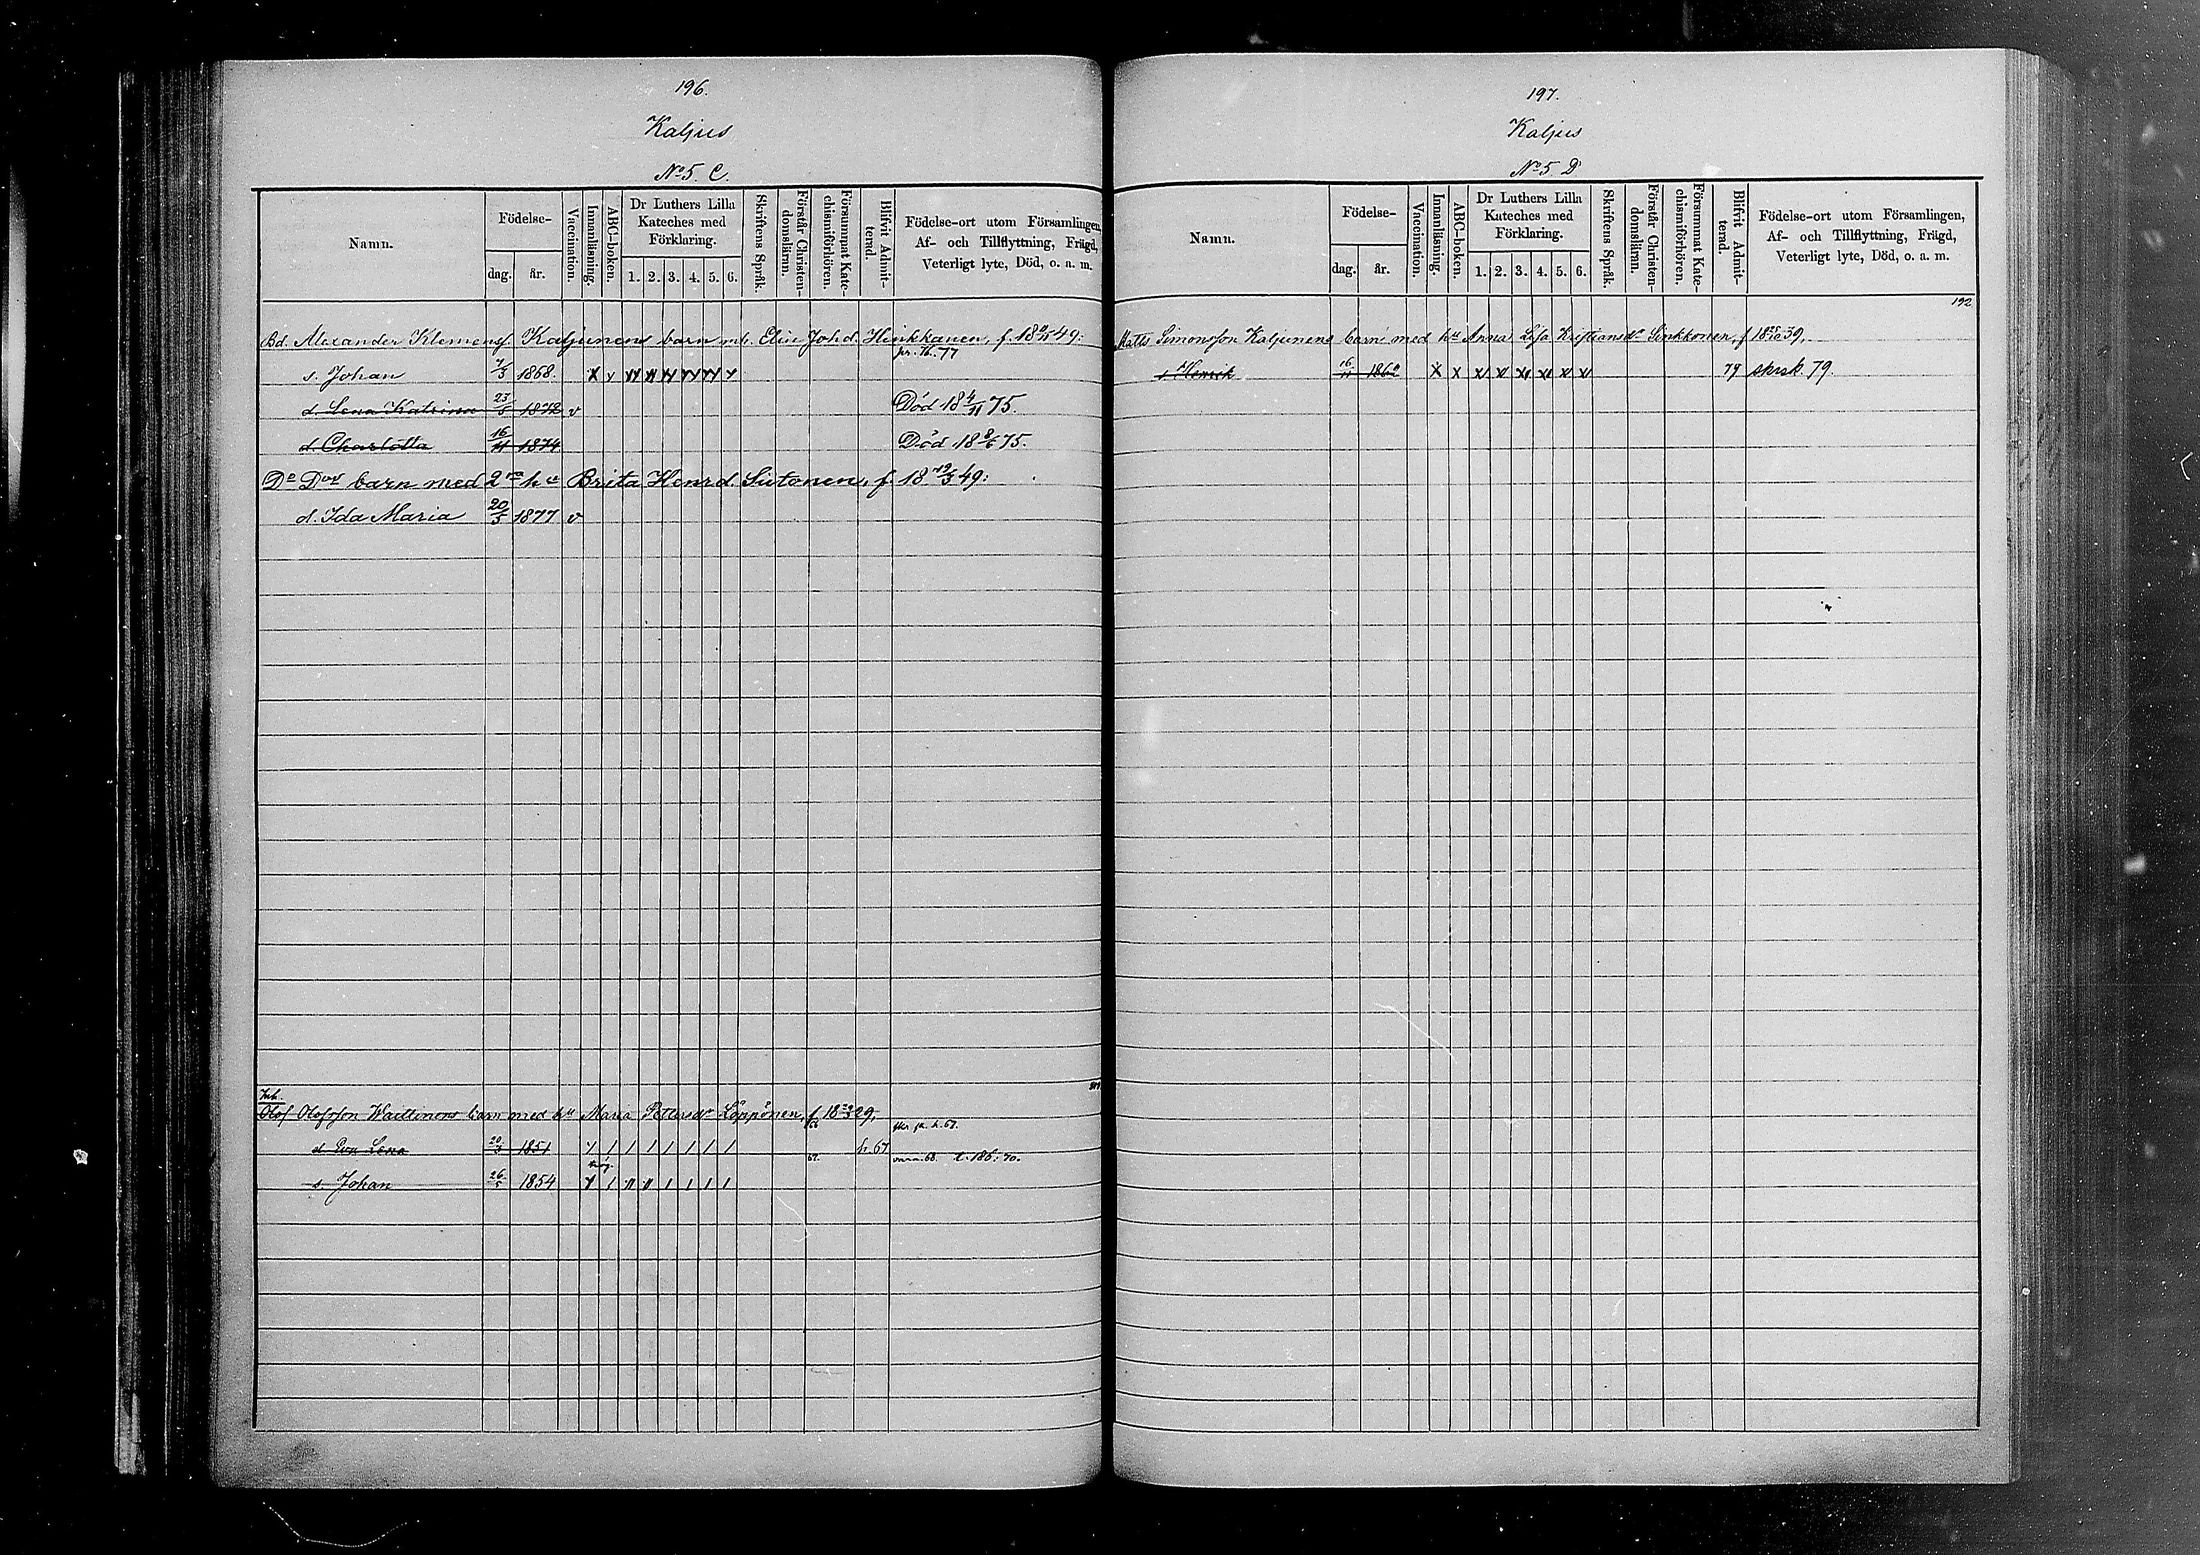 196.
Kaljus
No 5. C.
Namn.
Födelse-
dag.
år.
Vaccination.
Innanläsning.
ABC-boken.
Dr Luthers Lilla
Kateches med
Förklaring.
1. 2. 3. 4. 5. 6.
Skriftens Språk.
Förstår Christen-
domsläran.
Försummat Kate-
chismiförhören.
Blifvit Admit-
terad.
Födelse-ort utom Församlingen,
Af- och Tillflyttning, Frägd,
Veterligt lyte, Död, o. a. m.
Bd. Alexander Klemenss. Kaljunens barn m. h. Elin Joh.d. Hinkkanen, f. 18 49:
s. Johan 7/3 1868. x v
d. Lena Katrina 23/5 1872 v Död 18 4/11 75.
d. Charlotta 16/11 1874 Död 18 8/6 75.
De Dos barn med 2ra hu Brita Henrd. Siitonen, f. 18 12/3 49:
d. Ida Maria 20/3 1877 v
Inh.
Olof Olofsson Waittinens barn med hu Maria Pettersdr Löppönen, f. 18 29,
d. Eva Lena 20/3 1851 fr. 67
s. Johan 26/5 1854 t. 186: 70.
197.
Kaljus
No 5 D
Namn.
Födelse-
dag.
år.
Vaccination.
Innanläsning.
ABC-boken.
Dr Luthers Lilla
Kateches med
Förklaring.
1. 2. 3. 4. 5. 6.
Skriftens Språk.
Förstår Christen-
domsläran.
Försummat Kate-
chismiförhören.
Blifvit Admit-
terad.
Födelse-ort utom Församlingen,
Af- och Tillflyttning, Frägd,
Veterligt lyte, Död, o. a. m.
192
Matts Simonsson Kaljunens barn med hu Anna Lisa Kristiansdr Sinkkonen, f 18 39,
s Henrik 16/11 1862 x x 79 skrsk. 79.